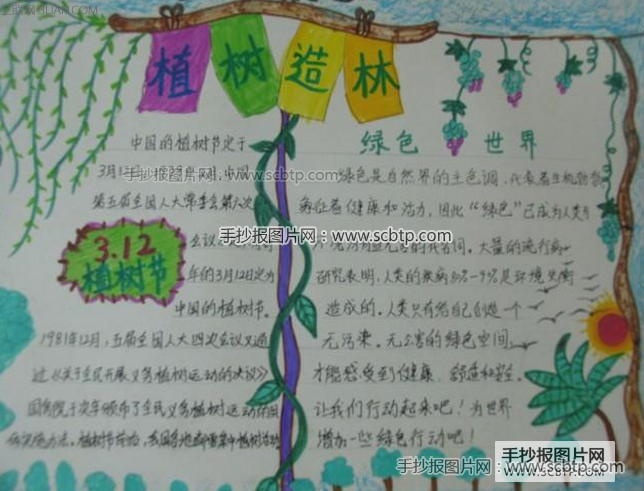 植树造林
中国的植树节定于
3月12日 中国
第五届全国人大常委会第六次
3.12
植树节
会议
年的3月12日定为
中国的植树节。
1981年12月，五届全国人大四次会议又通
过《关于全民开展义务植树运动的决议》
国务院于次年颁布了全民义务植树运动的
实施办法。植树节前后，我国各地都要集中植树活动
绿色世界
绿色是自然界的主色调，代表着生机勃勃
象征着健康和活力，因此“绿色”已成为人类
大量的流行病
研究表明，人类的疾病 是环境失衡
造成的。人类只有给自己创造一个
无污染。无公害的绿色空间，
才能感受到健康、舒适和安全。
让我们行动起来吧！为世界
增加一些绿色行动吧！
手抄报图片网：www.scbtp.com
手抄报图片网：www.scbtp.com
手抄报图片网：www.scbtp.com
手抄报图片网
WWW.SCBTP.COM